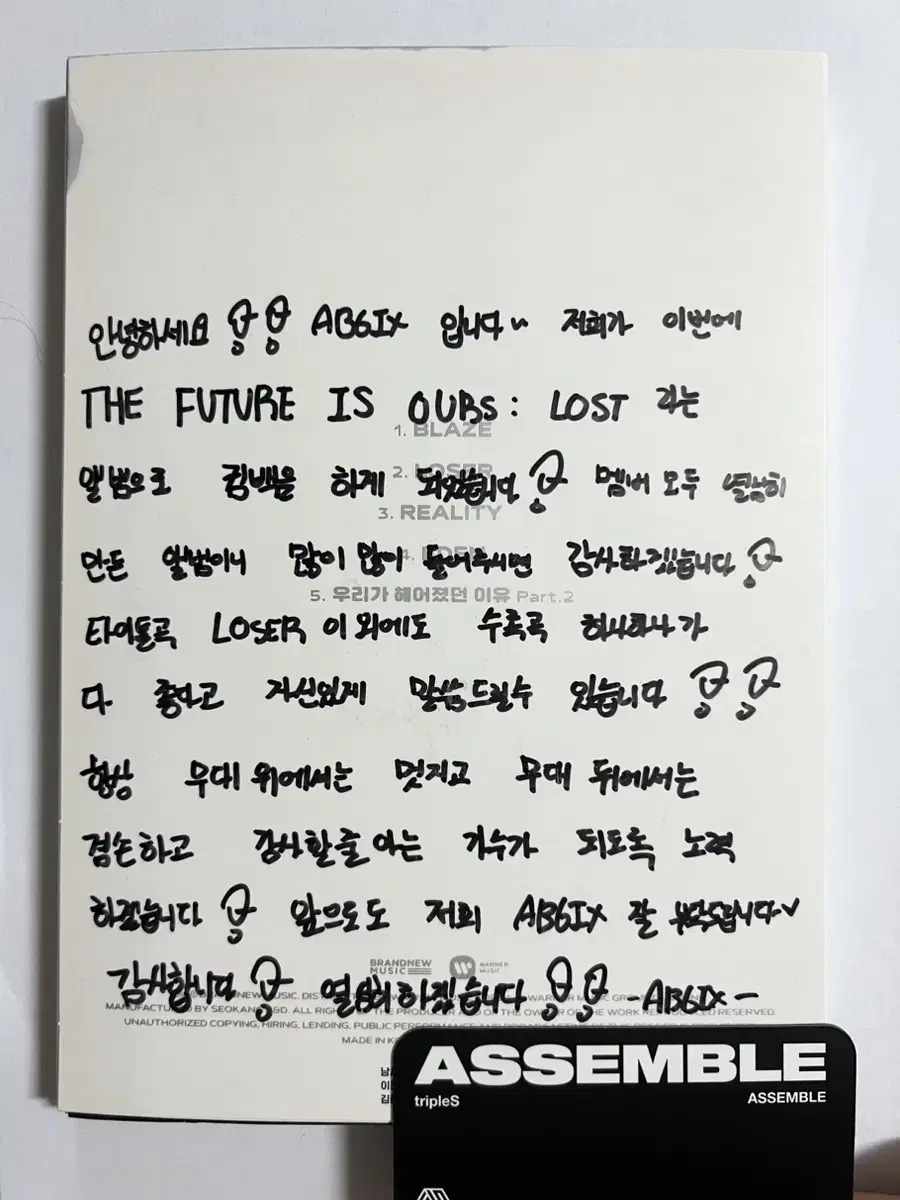 안녕하세요 AB6IX 입니다~ 저희가 이번에
THE FUTURE IS OURS : LOST 라는
1. BLAZE
앨범으로 컴백을 하게 되었습니다 멤버 모두 열심히
2. LOSER
3. REALITY
만든 앨범이니 많이 많이 들어주시면 감사하겠습니다
4.
5. 우리가 헤어졌던 이유 Part.2
타이틀곡 LOSER 이외에도 수록곡 하나하나가
다 좋다고 자신있게 말씀드릴수 있습니다
항상 무대 위에서는 멋지고 무대 뒤에서는
겸손하고 감사할줄 아는 가수가 되도록 노력
하겠습니다 앞으로도 저희 AB6IX 잘 부탁드립니다~
BRANDNEW MUSIC WARNER MUSIC
감사합니다 열심히 하겠습니다 -AB6IX-
MANUFACTURED BY ALL RIGHTS OF THE PRODUCER AND OF THE OWNER OF THE WORK REPRODUCED RESERVED.
UNAUTHORIZED COPYING, HIRING, LENDING, PUBLIC
MADE IN
ASSEMBLE
tripleS ASSEMBLE